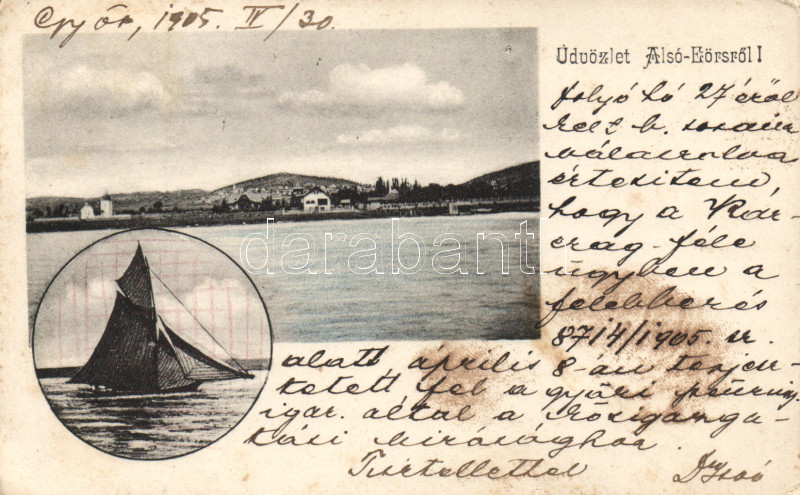 Győr, 1905. IV/30.
Üdvözlet Alsó-Eörsről!
folyó hó 27 éről
kelt b. soraira
válaszolva
értesitem,
hogy a Kar-
czag-féle
ügyben a
felebbezés
8714/1905. sz.
alatt április 8-án terjesz-
tetett fel a győri pénzügy-
igar. által a közigazga-
tási birósághoz.
Tisztelettel
darabanth.com